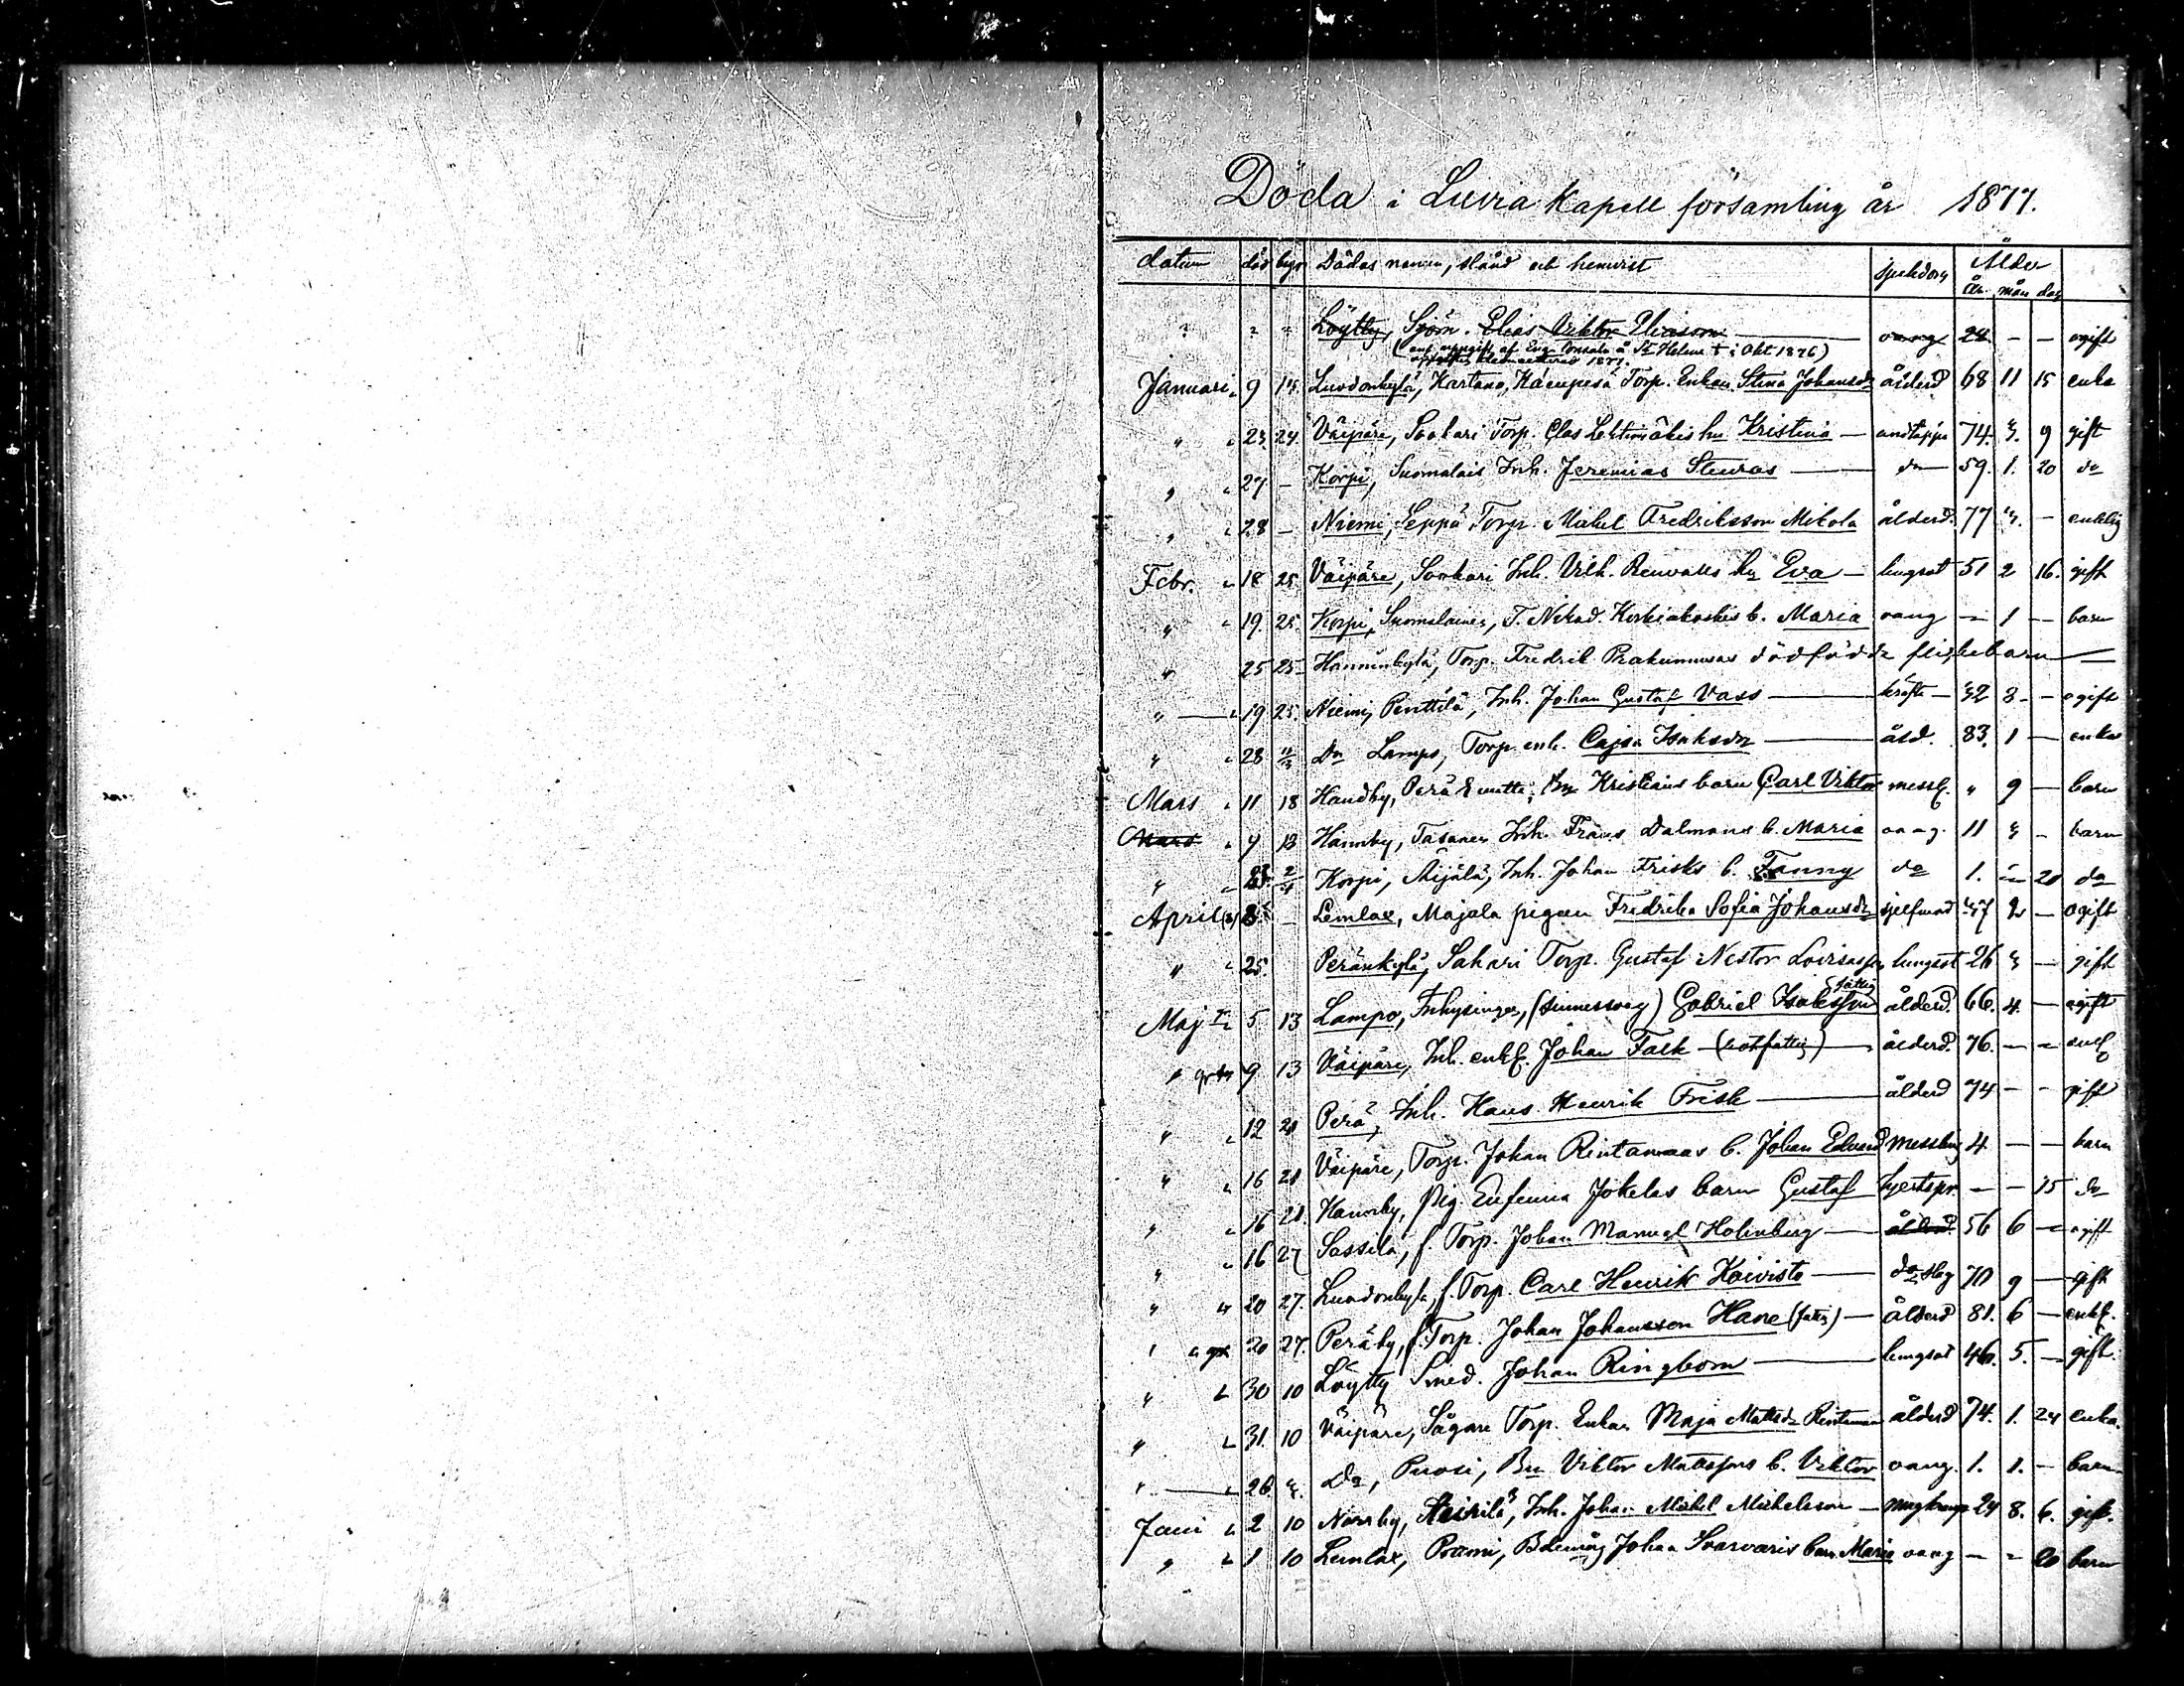 Döda i Luvia Kapell församling år 1877.
datum död begr Dödas namn, stånd och hemvist sjukdom Ålder
År. mån dag
" " " Löytty, Sjöm. Elias Viktor Eliasson — oang 24 — — ogift
(enl. uppgift af Eng. Consuln å St Helena † i Okt 1876)
Januari " 9 14 Luodonkylä, Kartano, Torp. Enkan Stina Johansdr ålderd 68 11 15 enka
" " 23. 24. Väipäre, Sonkari Torp. hu Kristina — andtäppa 74. 3. 9 gift
" " 27 — Korpi, Suomalais Inh. Jeremias Stenros — do 59. 1. 20 do
" " 28 — Niemi, Seppä Torp. Mickel Fredriksson Mikola ålderd. 77 3. — enkling
Febr. " 18 25 Väipäre, Sonkari Inh. Vilh. Renvalls hu Eva — lungsot 51 2 16. gift
" " 19. 25. Korpi, Suomalainen, T. Nikod. Korkiakoskis b. Maria oang — 1 — barn
" 25 25 Hanninkylä, Torp. Fredrik dödfödda flickebarn —
" — " 19 25. Niemi, Penttilä, Inh. Johan Gustaf Vass — kräfta — 32 8 — ogift
" " 28 11/3 Do Lamps, Torp. enk. Cajsa Isaksdr — åld. 83. 1 — enka
Mars " 11 18 Hamby, Perä Kristians barn Carl Viktor messl. " 9 — barn
Mars " 9 18 Hamnby, Tasanen Inh. Frans Dalmans b. Maria oang. 11 3 — barn
" " 23. 2/4 Korpi, Äijälä, Inh. Johan Frisks b. Fanny do 1. — 20 do
April 8 — Lemlax, Majala pigan Fredrika Sofia Johansdr sjelfmord 47 2 — ogift
" " 25. Peränkylä, Sahari Torp. Gustaf Nestor lungsot 26 3 — gift
Maj " 5 13 Lampo, Inhysingen, (sinnessvag) Gabriel Isaksson (fattig) ålderd. 66. 4. — ogift
" 9 13 Väipäre, Inh. enkl. Johan Falk — ålderd. 76. — — enkl
" " 12 21 Perä, Inh. Hans Henrik Frisk — ålderd 74 — — gift
" " 16 21 Väipäre, Torp. Johan Rintamaas b. Johan Edvard messling 4. — — barn
" " 16 21. Hamnby, Pig Eufemia Jokelas barn Gustaf — — 15 do
" " 16 27 Sassila, f. Torp. Johan Manuel Holmberg — ålderd 56 6 — ogift
" " 20 27. Luodonkylä, f. Torp. Carl Henrik Koivisto — do 70 9 — gift
" " 20 27. Peräby, f. Torp. Johan Johansson Hane (fattig) — ålderd 81. 6 — enkl.
" " 30 10 Löytty Smed. Johan Ringbom — lungsot 46. 5. — gift.
" " 31. 10 Väipäre, Sågare Torp. Enkan Maja Mattsdr ålderd 74. 1. 24 enka.
" — " 26 3. Do, Puosi, Viktor Matssons b. Viktor oang. 1. 1. — barn
Juni " 2 10 Norrby, Heikilä, Inh. Johan Mickel Mickelsson — 24 8. 6. gift.
" " 1 10 Lemlax, Johan barn Maria oang — — 20 barn